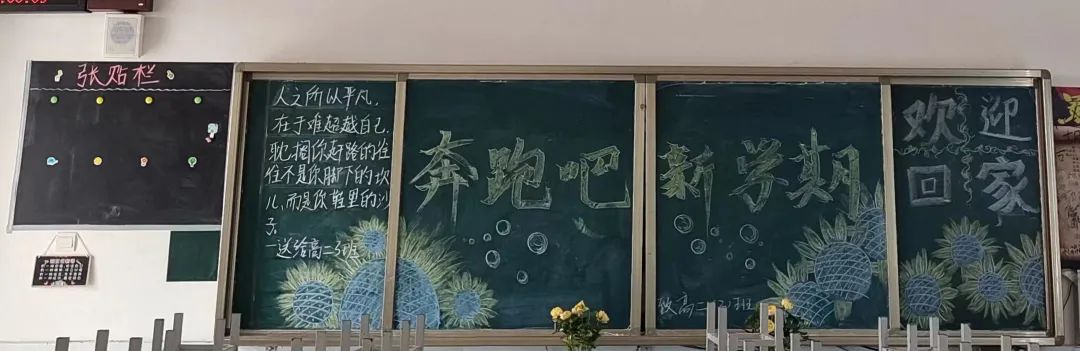 张贴栏
人之所以平凡,
在于难超越自己.
耽搁你赶路的往
往不是你脚下的坎
儿,而是你鞋里的沙
子
一送给高二3班
奔跑吧
新学期
致高二(3)班
欢迎
回家